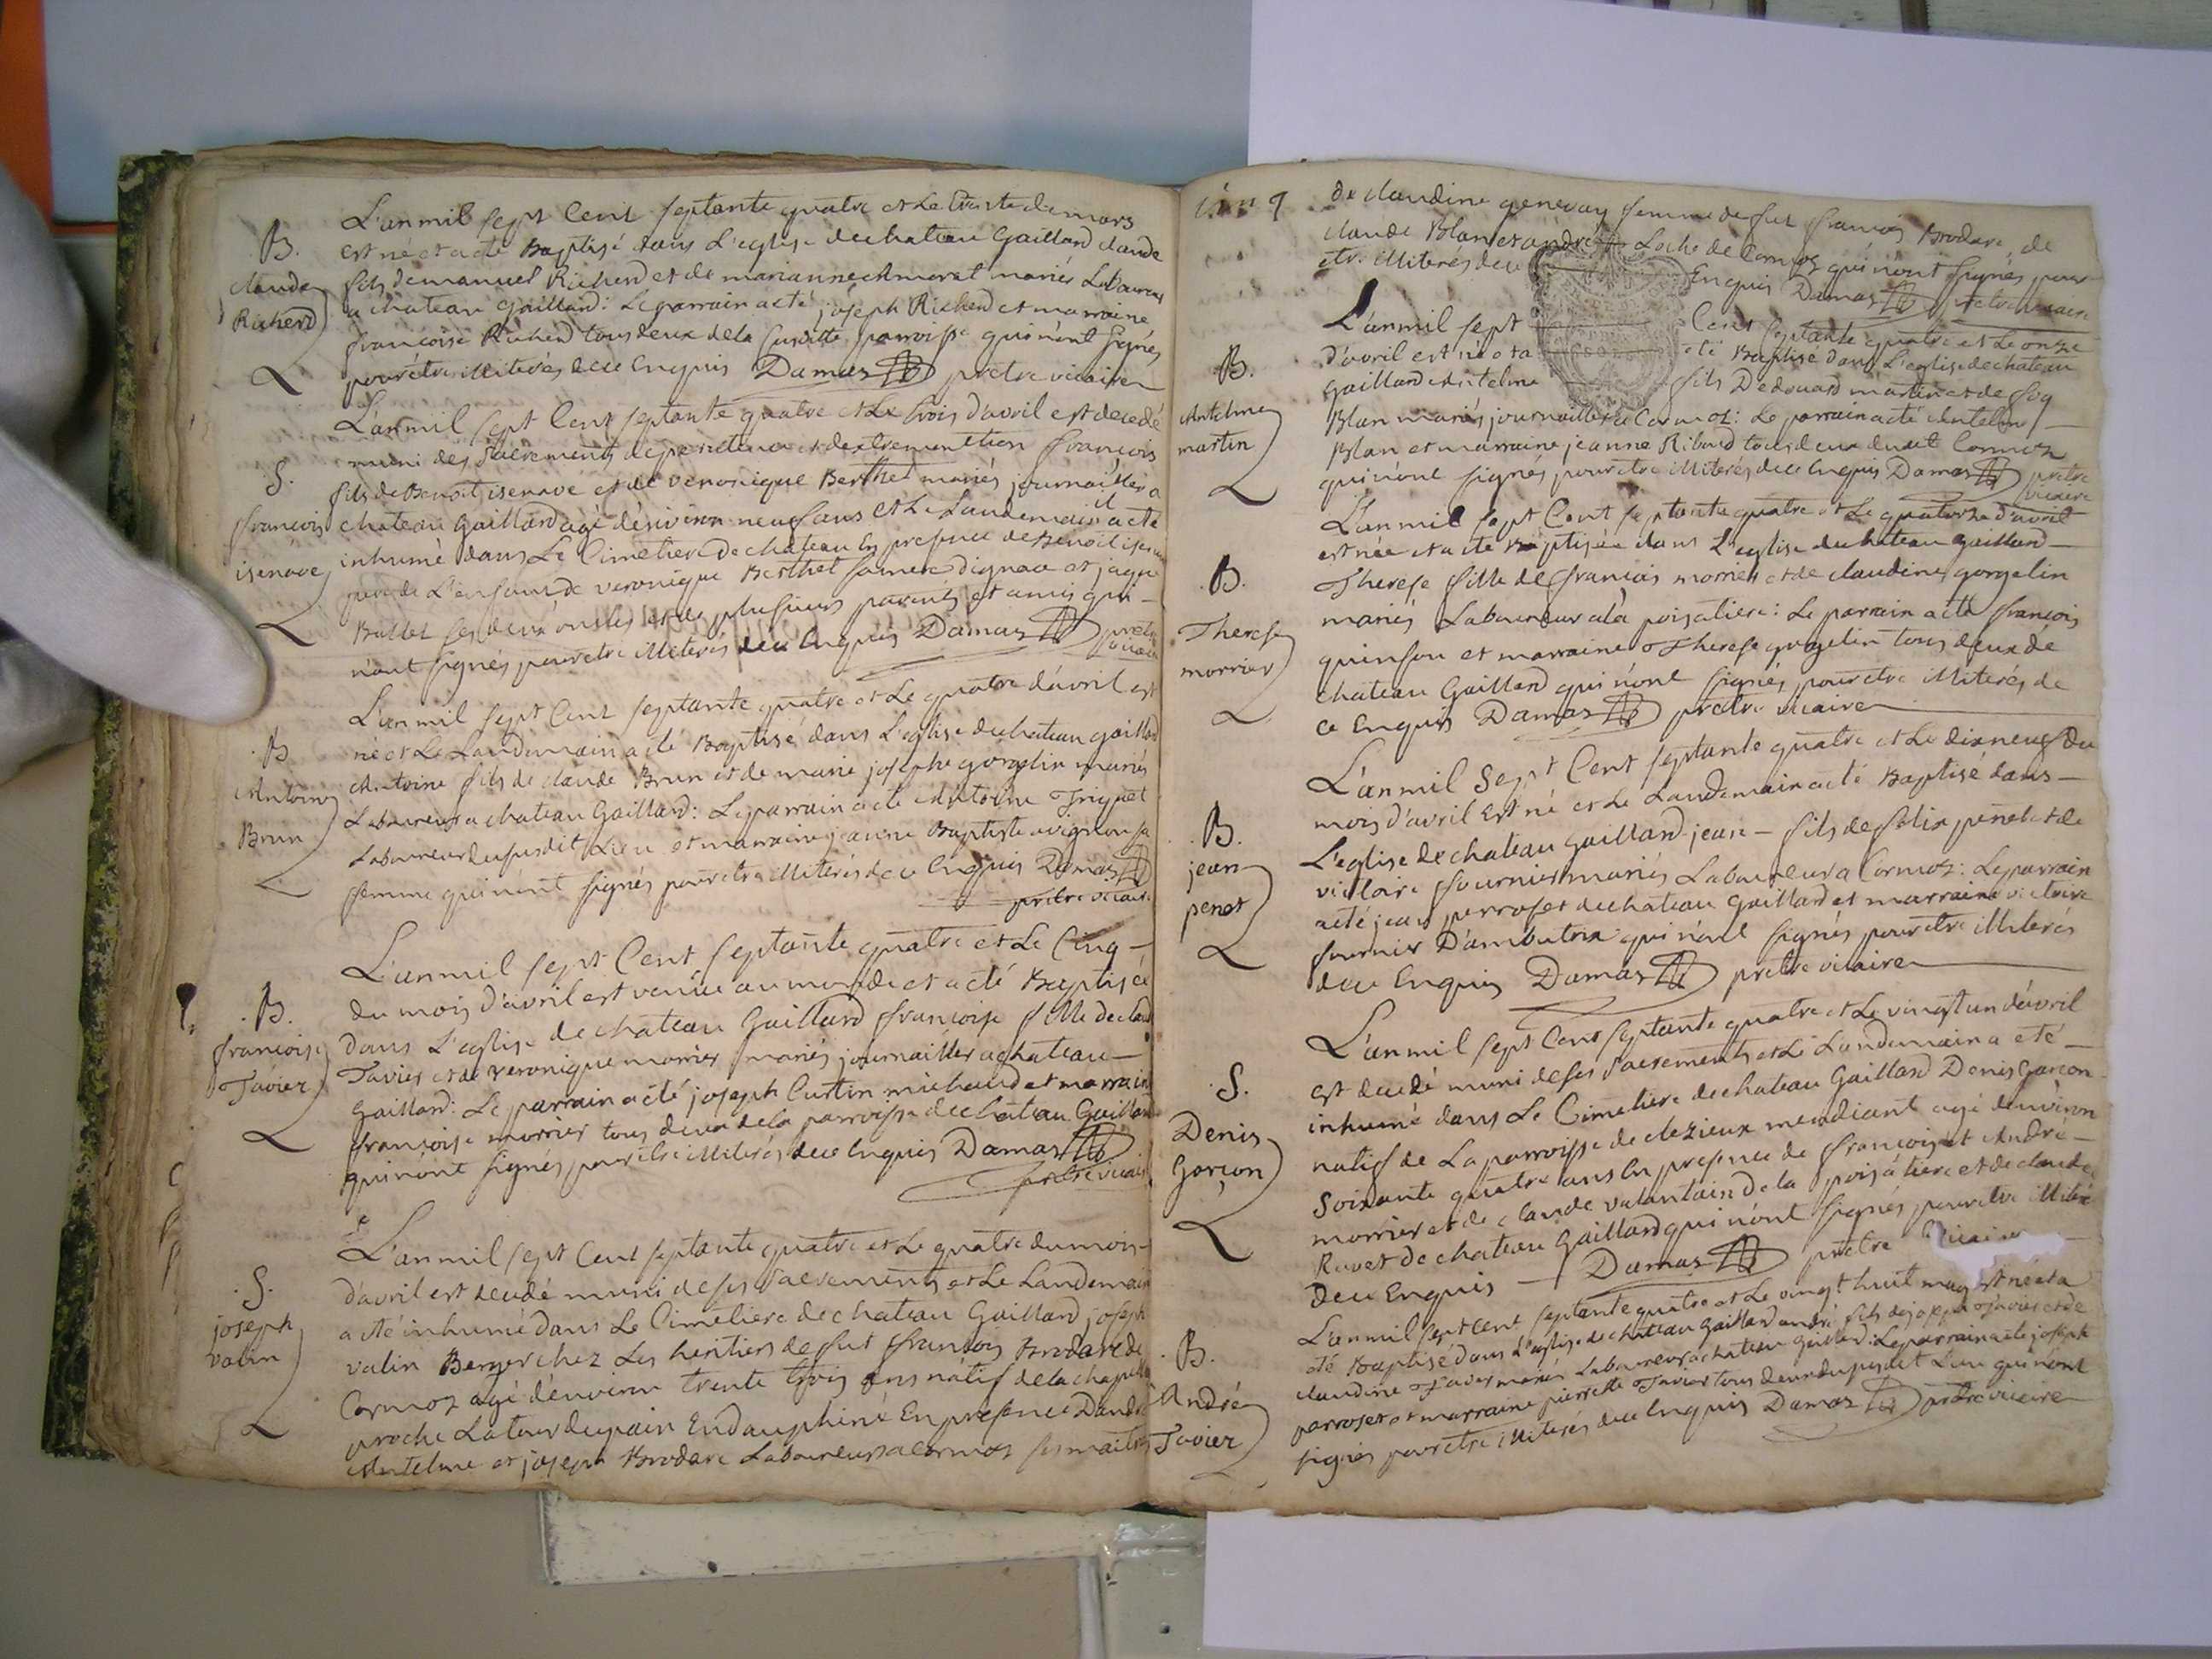 B.
claude
Richerd
L'an mil sept Cent septante quatre et Le trente de mars
est né et a été Baptisé dans L'eglise de chateau Gaillard claude
fils demanuel Richerd et de marianne chmorat mariés Laboureurs
a chateau Gaillard: Le parrain a eté joseph Richerd et marraine
francoise Richerd tous deux de la susditte parroisse qui n'ont signés
pour être illiterés de ce Enquis Damas prètre vicaire
S.
francois
isenave
L'an mil sept Cent septante quatre et Le trois d'avril est decedé
muni des sacrements de penitence et dextremonction francois
fils de Benoit isenave et de veronique Berthet mariés journailler a
chateau Gaillard agé d'environ neuf ans et Le Landemain il a eté
inhumé dans Le Cimetiere de chateau En presence de Benoit isenave
pere de L'enfant de veronique Berthet sa mere dignace et jaque
Ballet ses deux oncles et de plusieurs parents et amis qui
n'ont signés pour etre illiterés de ce Enquis Damas prètre
vicaire
B
Antoine
Brun
L'an mil sept Cent septante quatre et Le quatre d'avril est
né et Le Landemain a eté Baptisé dans L'eglise de chateau gaillard
Antoine fils de claude Brun et de marie josephe gorgelin mariés
Laboureurs a chateau Gaillard: Le parrain a eté Antoine Triquet
Laboureur du susdit Lieu et marraine jeanne Baptiste avignon sa
femme qui n'ont signés pour etre illiterés de ce Enquis Damas
prètre vicaire
B.
francoise
Tavier
L'an mil sept Cent septante quatre et Le Cinq
du mois d'avril est venüe au monde et a eté Baptisée
dans L'eglise de chateau Gaillard francoise fille de claude
Tavier et de veronique morrier mariés journailler a chateau
Gaillard: Le parrain a eté joseph Curtin michaud et marraine
francoise morrier tous deux de la parroisse de chateau Gaillard
qui n'ont signés pour être illiterés de ce Enquis Damas
prètre vicaire
S.
joseph
valin
L'an mil sept Cent septante quatre et Le quatre du mois
d'avril est decedé muni de ses sacrements et Le Landemain
a eté inhumé dans Le Cimetiere de chateau Gaillard joseph
valin Berger chez Les heritiers de fut francois Brodare de
Cormoz agé d'environ trente trois ans nâtif de la chapelle
proche La tour du pain En dauphiné En presence D'andré
Antelme et joseph Brodare Laboureurs a Cormoz ses maitres
de claudine genevay femme de fut francois Brodare, de
claude Blan et andré Loche de Cormoz qui n'ont signés pour
etre illiterés de ce Enquis Damas prètre vicaire
B.
Antelme
martin
L'an mil sept Cent septante quatre et Le onze
d'avril est né et a eté Baptisé dans L'eglise de chateau
Gaillard Antelme fils D'edouard martin et de
Blan mariés journailler a Cormoz: Le parrain a eté Antelme
Blan et marraine jeanne Riboud tous deux dudit Cormoz
qui n'ont signés pour etre illiterés de ce Enquis Damas prètre
vicaire
B.
Therese
morrier
L'an mil sept Cent septante quatre et Le quatorze d'avril
est née et a eté Baptisée dans L'eglise de chateau gaillard
Therese fille de francois morrier et de claudine gorgelin
mariés Laboureur a la poisatiere: Le parrain a eté francois
quinson et marraine Therese gorgelin tous deux de
chateau Gaillard qui n'ont signés pour etre illiterés de
ce Enquis Damas prètre vicaire
B.
jean
penet
L'an mil Sept Cent septante quatre et Le dixneuf du
mois d'avril Est né et Le Landemain a eté Baptisé dans
L'eglise de chateau Gaillard jean fils de felix penet et de
victoire fournier mariés Laboureur a Cormoz: Le parrain
a eté jean perroset de chateau Gaillard et marraine victoire
fournier D'ambutrix qui n'ont signés pour etre illiterés
de ce Enquis Damas prètre vicaire
S.
Denis
Garçon
L'an mil sept Cent septante quatre et Le vingt un d'avril
est decedé muni de ses sacrements et Le Landemain a eté
inhumé dans Le Cimetiere de chateau Gaillard Denis Garcon
natif de La parroisse de clezieux mendiant agé d'environ
Soixante quatre ans En presence de francois et André
morrier et de claude valantain de la poisâtiere et de claude
Ravet de chateau Gaillard qui n'ont signés pour etre illiteré
de ce Enquis Damas prètre vicaire
B.
André
Tavier
L'an mil sept cent septante quatre et Le vingt huit may est né et a
eté Baptisé dans L'eglise de chateau Gaillard andré fils de joseph Tavier et de
claudine Tavier mariés Laboureurs a chateau Gaillard: Le parrain a eté joseph
parroset et marraine pierrette Tavier tous deux du susdit Lieu qui n'ont
signés pour etre illiterés de ce Enquis Damas prètre vicaire